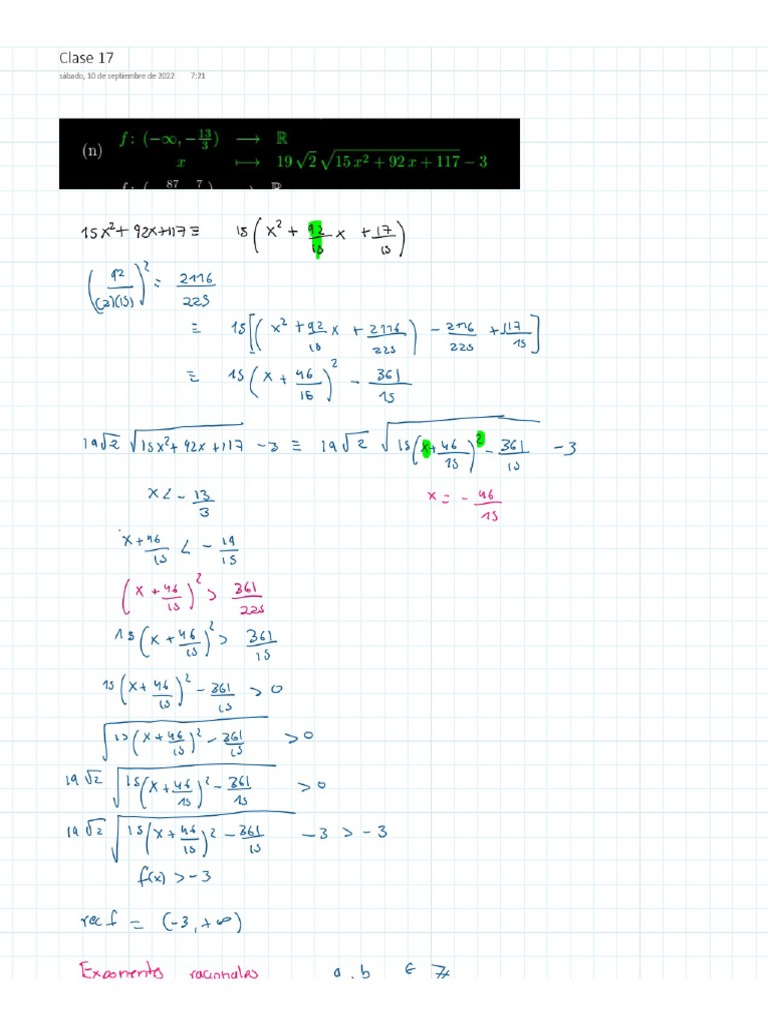 Clase 17
sábado, 10 de septiembre de 2022 7:21
(n) f: (−∞, −13/3) ⟶ ℝ
x ⟼ 19√2 √(15x² + 92x + 117) − 3
f: ( 87 7 ) ⟶ ℝ
15x² + 92x + 117 ≡ 15(x² + 92/15 x + 17/15)
(92/(2)(15))² = 2116/225
≡ 15[(x² + 92/15 x + 2116/225) − 2116/225 + 117/15]
≡ 15(x + 46/15)² − 361/15
19√2 √(15x² + 92x + 117) − 3 ≡ 19√2 √(15(x + 46/15)² − 361/15) − 3
x < −13/3
x = −46/15
x + 46/15 < −19/15
(x + 46/15)² > 361/225
15(x + 46/15)² > 361/15
15(x + 46/15)² − 361/15 > 0
√(15(x + 46/15)² − 361/15) > 0
19√2 √(15(x + 46/15)² − 361/15) > 0
19√2 √(15(x + 46/15)² − 361/15) − 3 > −3
f(x) > −3
rec f = (−3, +∞)
Exponentes racionales a, b ∈ ℤ